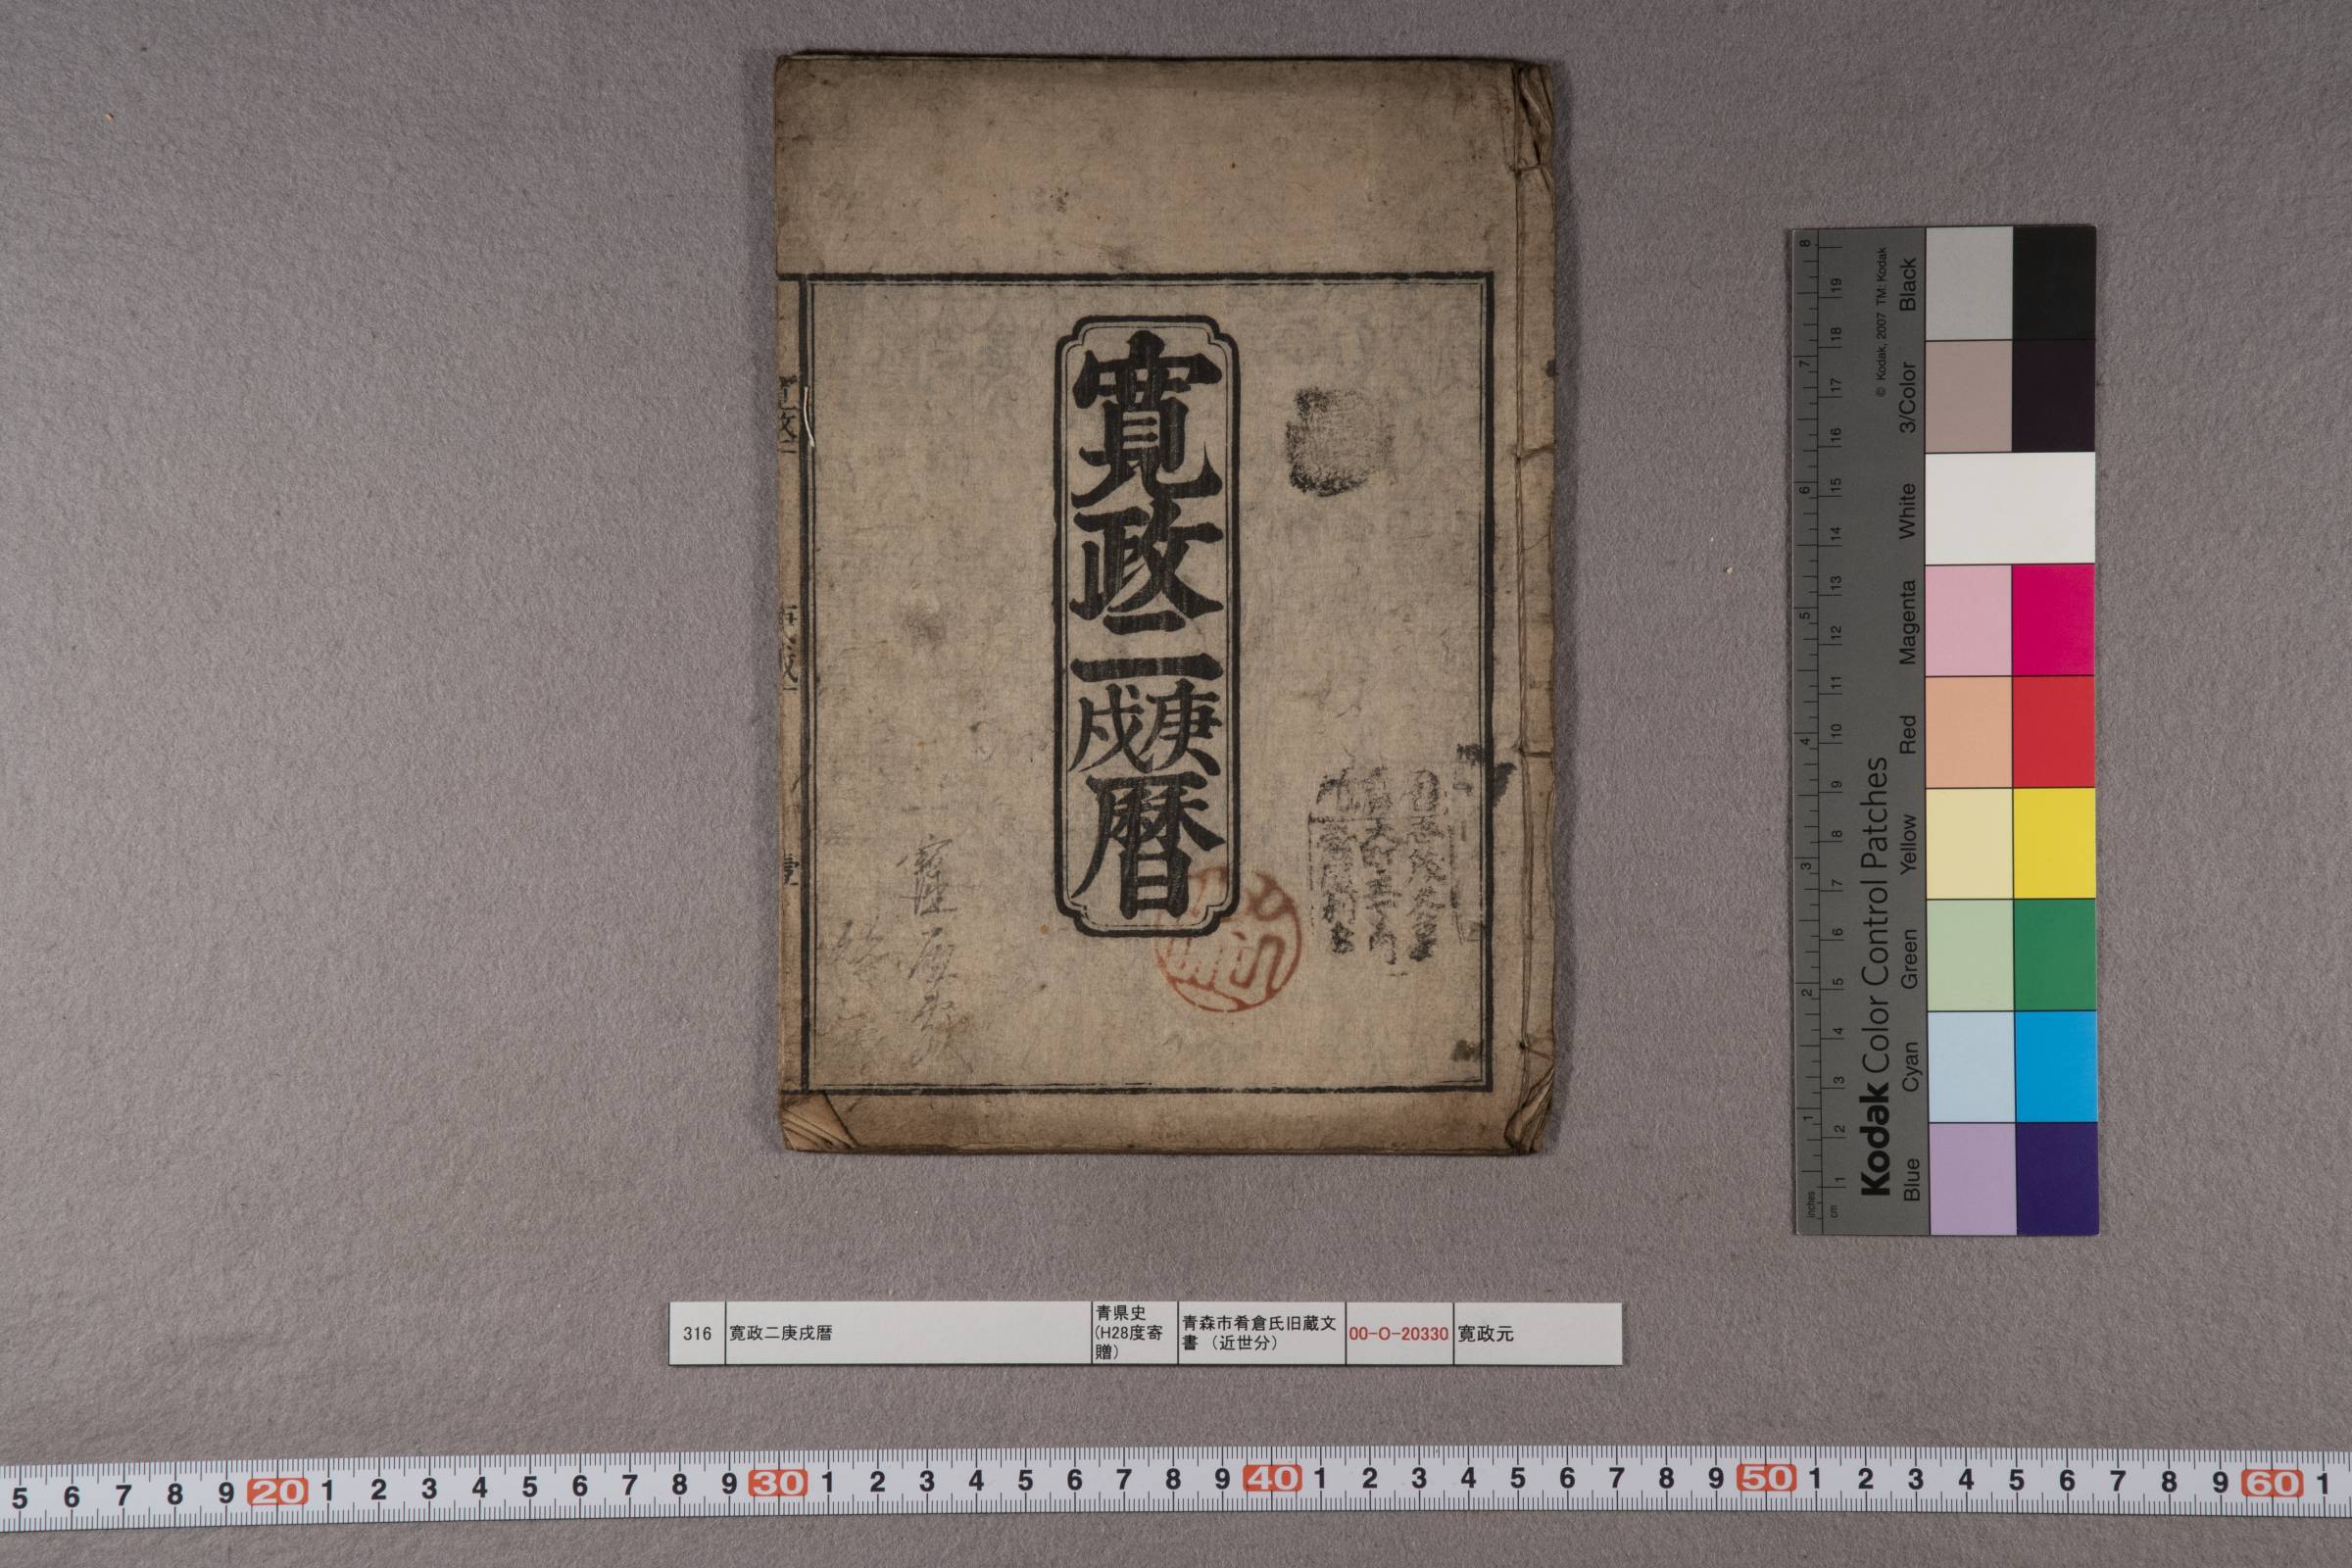 寛政二庚戌暦
316
寛政二庚戌暦
青県史
(H28度寄
贈)
青森市肴倉氏旧蔵文
書 （近世分）
00-O-20330
寛政元
© Kodak, 2007 TM: Kodak
Kodak Color Control Patches
Blue Cyan Green Yellow Red Magenta White 3/Color Black
inches 1 2 3 4 5 6 7 8
cm 1 2 3 4 5 6 7 8 9 10 11 12 13 14 15 16 17 18 19
5 6 7 8 9 20 1 2 3 4 5 6 7 8 9 30 1 2 3 4 5 6 7 8 9 40 1 2 3 4 5 6 7 8 9 50 1 2 3 4 5 6 7 8 9 60 1